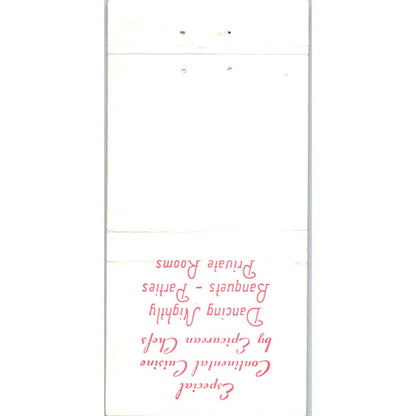 Especial
Continental Cuisine
by Epicurean Chefs
Dancing Nightly
Banquets - Parties
Private Rooms